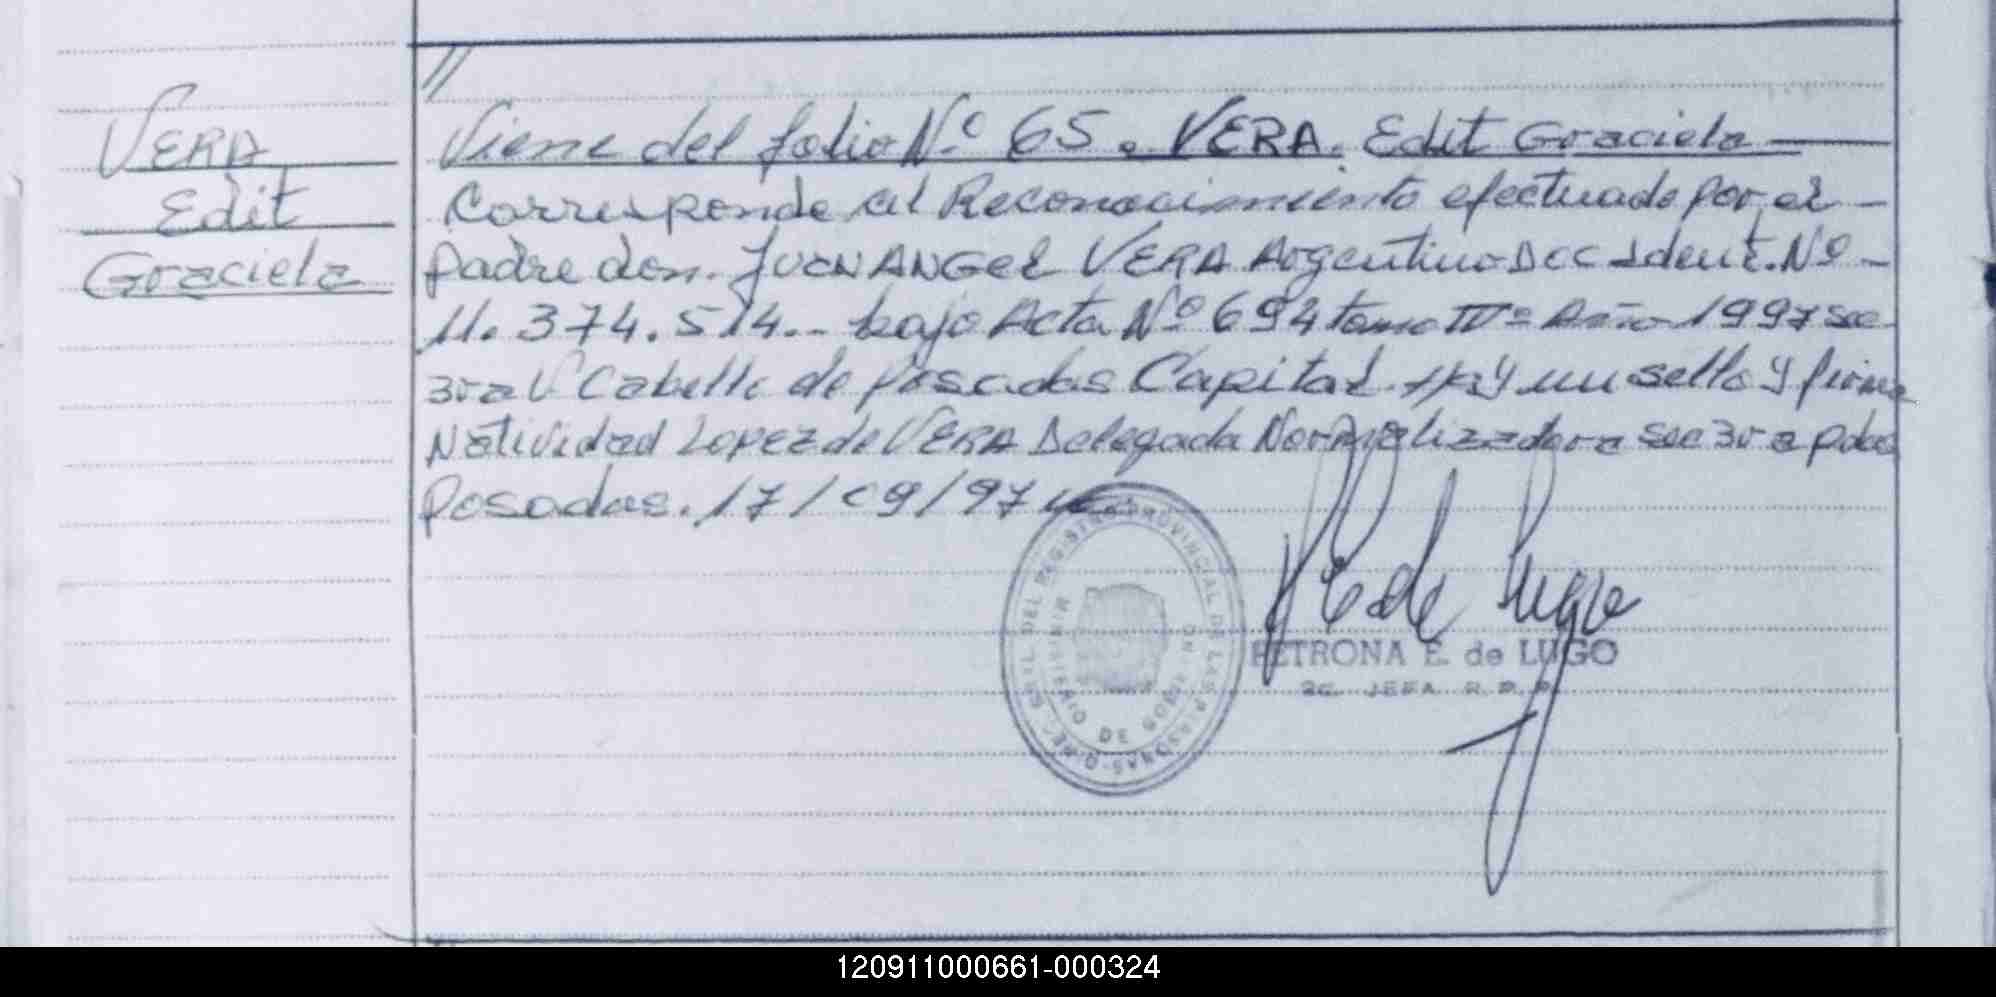 VERA
Edit
Graciela
//
Viene del folio Nº 65. VERA. Edit Graciela
Corresponde al Reconocimiento efectuado por el
padre don. JUAN ANGEL VERA Argentino Doc Ident. Nº
11.374.514.- bajo Acta Nº 694 tomo IVº Año 1997 Sec
3ra Vª Cabello de Posadas Capital. Hay un sello y firma
Natividad Lopez de VERA Delegada Normalizadora Sec 3ra pdas
Posadas. 17/09/97
DIREC. GRAL. DEL REGISTRO PROVINCIAL DE LAS PERSONAS
MINISTERIO DE GOBIERNO
P E de Lugo
PETRONA E. de LUGO
JEFA R.P.P.
120911000661-000324